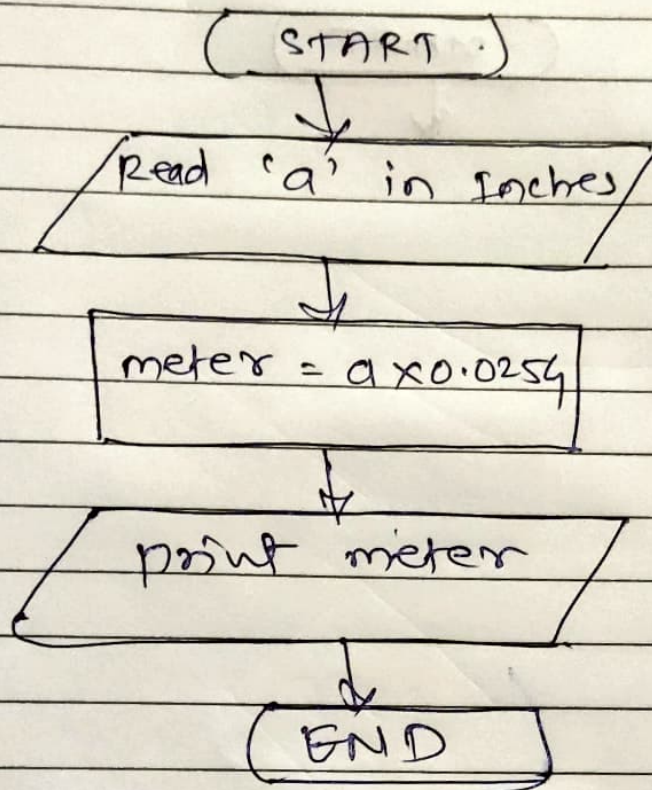 START
Read 'a' in Inches
meter = a x 0.0254
print meter
END